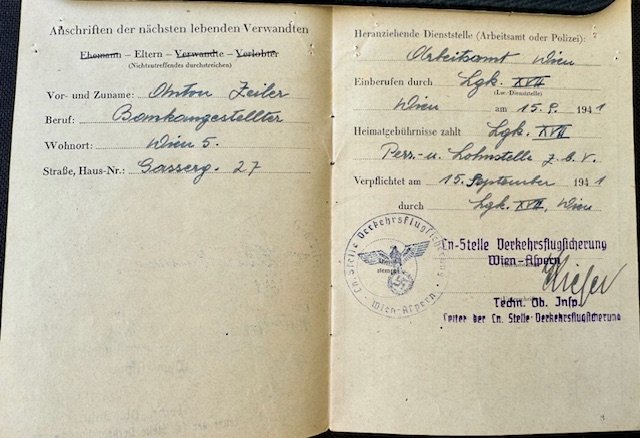 Anschriften der nächsten lebenden Verwandten
Ehemann – Eltern – Verwandte – Verlobter
(Nichtzutreffendes durchstreichen)
Vor- und Zuname: Anton Zeiler
Beruf: Bankangestellter
Wohnort: Wien 5.
Straße, Haus-Nr.: Gasserg. 27
Heranziehende Dienststelle (Arbeitsamt oder Polizei):
Arbeitsamt Wien
Einberufen durch Lgk. XVII
(Luc.-Dienststelle)
Wien am 15.9. 1941
Heimatgebührnisse zahlt Lgk. XVII
Pers.- u. Lohnstelle z.b.V.
Verpflichtet am 15. September 1941
durch Lgk. XVII, Wien
Ln.-Stelle Verkehrsflugsicherung
Wien-Aspern
Ln-Stelle Verkehrsflugsicherung
Wien-Aspern
Techn. Ob. Insp.
Leiter der Ln. Stelle Verkehrsflugsicherung